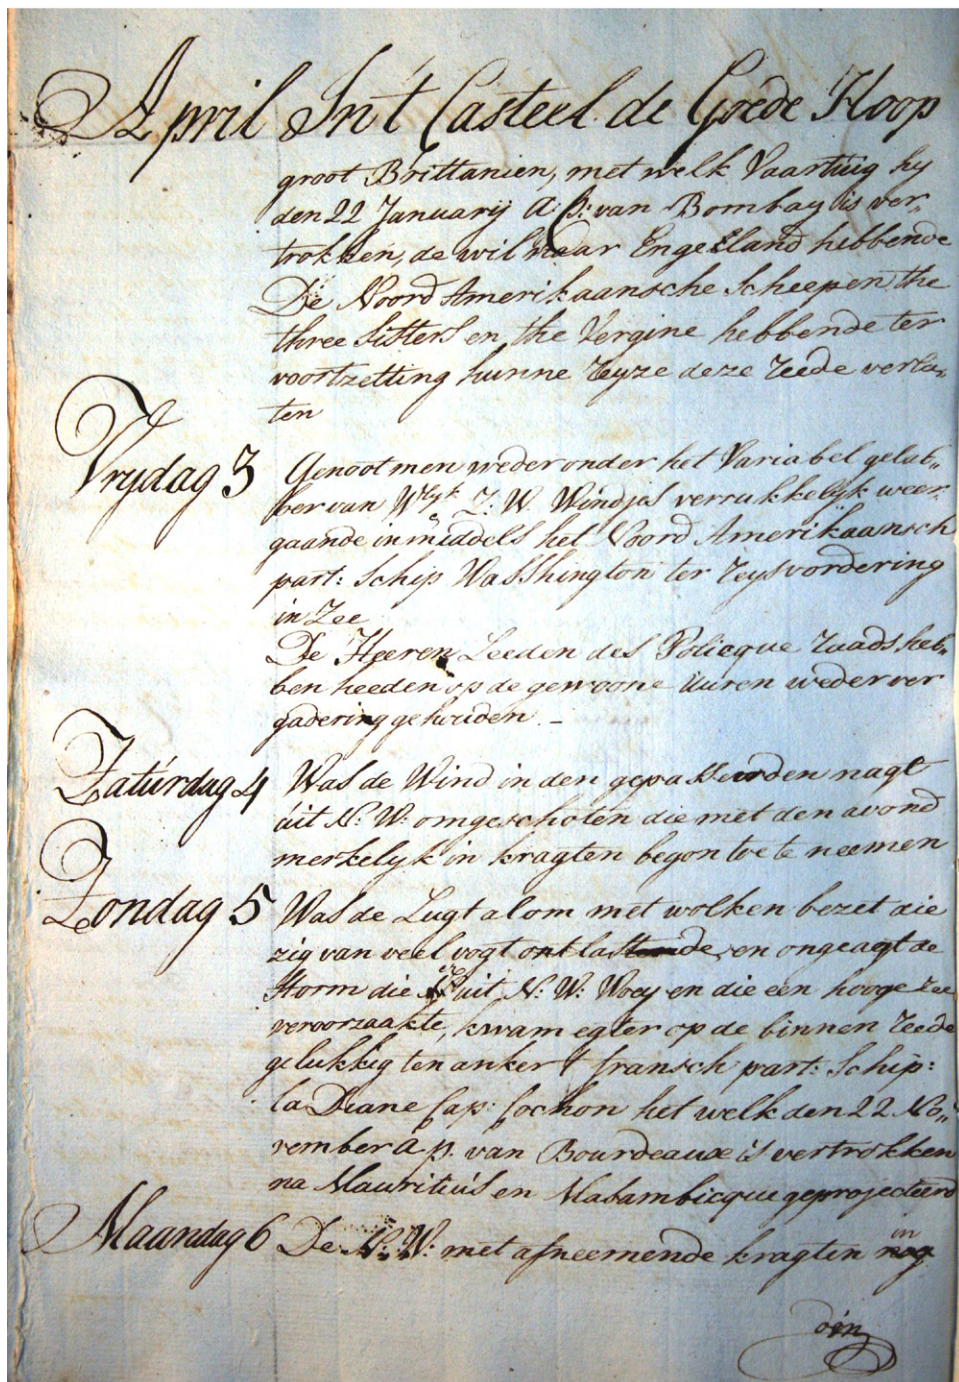 April In't Casteel de Goede Hoop
groot Brittanien, met welk Vaartuig hy
den 22 Januarij a: p: van Bombay is ver„
trokken, de wil naar Engelland hebbende
De Noord Amerikaansche Scheepen the
three Sisters en the Vergine hebbende ter
voortzetting hunne Reyze deze Reede verla„
ten
Vrydag 3 Genoot men weder onder het Variabel gelab„
ber van Wlyk Z: W. Windjes verrukkelyk weer
gaande inmiddels het Noord Amerikaansch
part: Schip Wasshington ter Reysvordering
in Zee
De Heeren Leeden des Policque Raads heb„
ben heeden op de gewoone uuren weder ver
gadering gehouden. –
Zaturdag 4 Was de Wind in den gepasseerden nagt
uit N: W: omgeschoten die met den avond
merkelyk in kragten begon toe te neemen
Zondag 5 Was de Lugt alom met wolken bezet die
zig van veel vogt ontlastende, en ongeagt de
Storm die er uit N: W: Woey en die een hooge zee
veroorzaakte, kwam egter op de binnen Reede
gelukkig ten anker t fransch part: Schip:
la Diane Cap: Cochon het welk den 22 No„
vember a. p. van Bourdeaux is vertrokken
na Mauritius en Mosambicque geprojecteerd
Maandag 6 De N: W: met afneemende kragten in nog